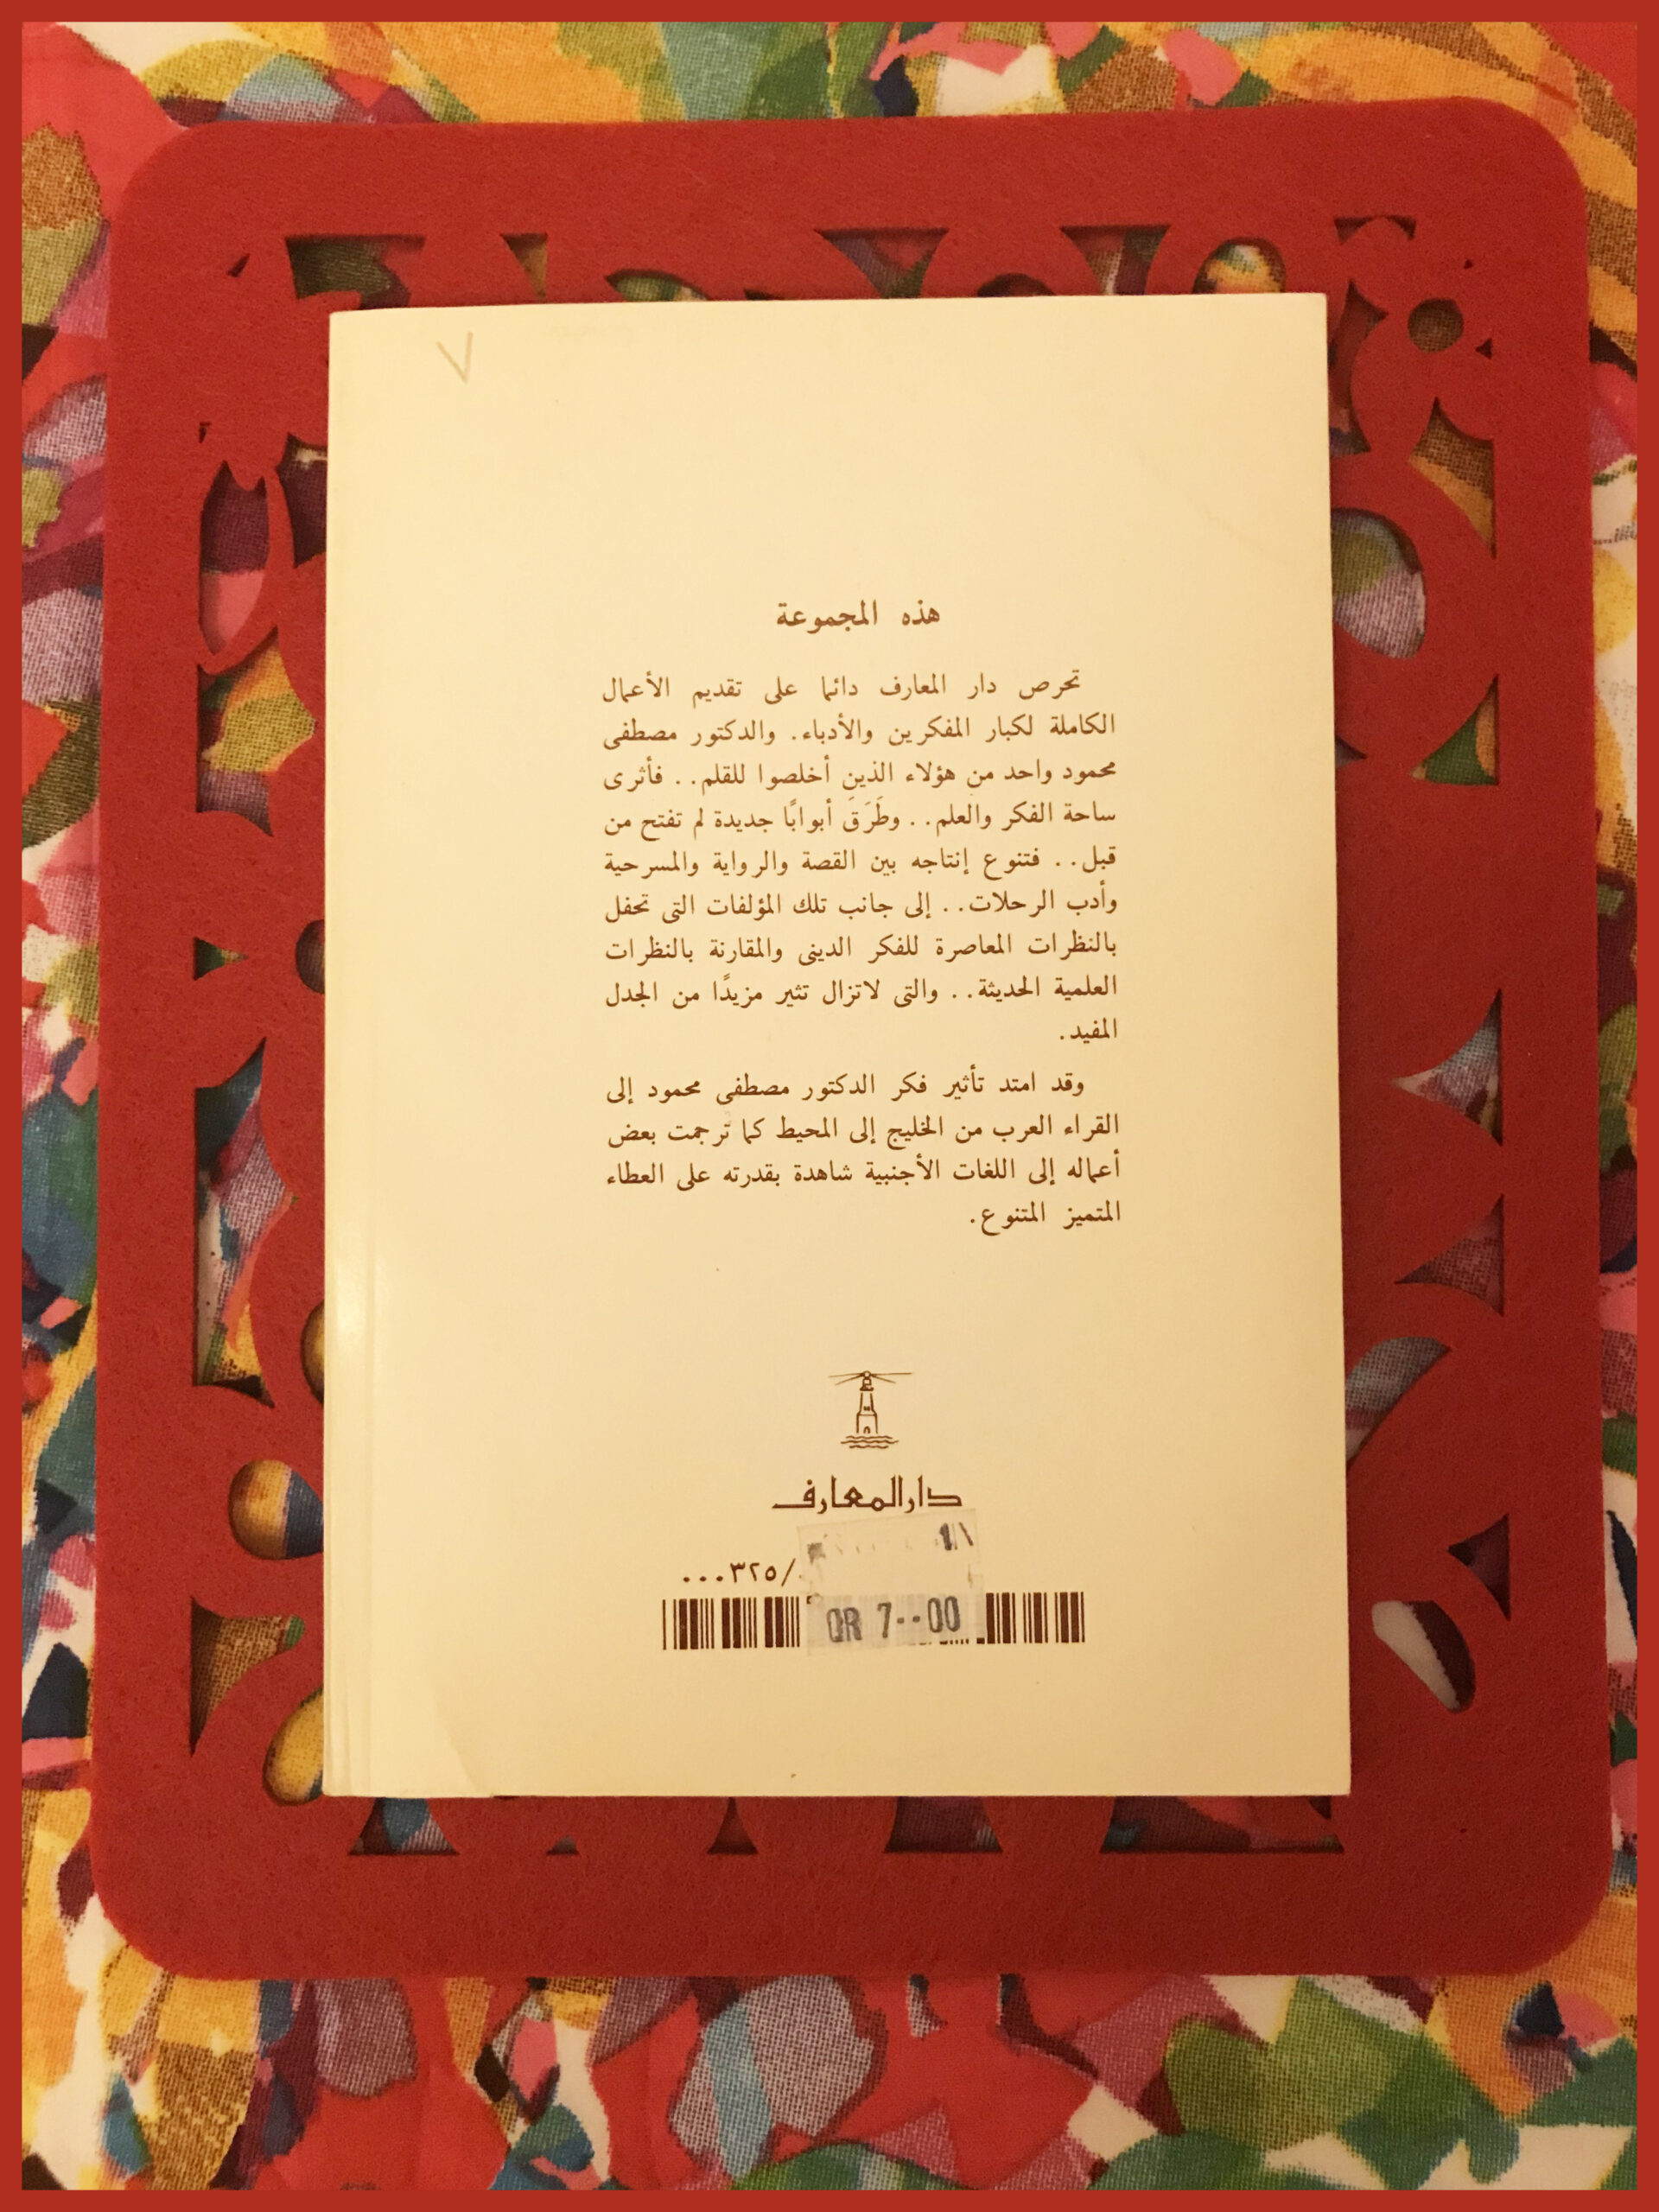 ٧
هذه المجموعة
تحرص دار المعارف دائما على تقديم الأعمال
الكاملة لكبار المفكرين والأدباء. والدكتور مصطفى
محمود واحد من هؤلاء الذين أخلصوا للقلم.. فأثرى
ساحة الفكر والعلم.. وطَرَقَ أبوابًا جديدة لم تفتح من
قبل.. فتنوع إنتاجه بين القصة والرواية والمسرحية
وأدب الرحلات.. إلى جانب تلك المؤلفات التى تحفل
بالنظرات المعاصرة للفكر الدينى والمقارنة بالنظرات
العلمية الحديثة.. والتى لاتزال تثير مزيدًا من الجدل
المفيد.
وقد امتد تأثير فكر الدكتور مصطفى محمود إلى
القراء العرب من الخليج إلى المحيط كما تُرجمت بعض
أعماله إلى اللغات الأجنبية شاهدة بقدرته على العطاء
المتميز المتنوع.
دار المعارف
...٣٢٥/
QR 7--00